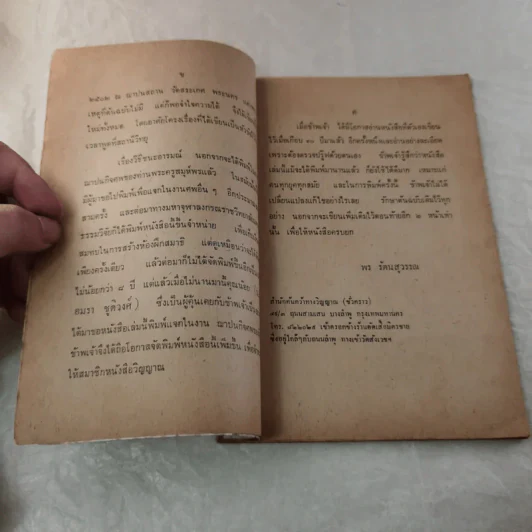 ข
๒๕๐๒ ณ ฌาปนสถาน วัดสระเกศ พระนคร
เหตุที่ต้นฉบับไม่มี แต่ก็พอจำใจความได้
ใหม่ทั้งหมด โดยอาศัยโครงเรื่องที่ได้เขียนเป็น
เวลาพูดที่สถานีวิทยุ
เรื่องวิธีชนะอารมณ์ นอกจากจะได้พิมพ์
ฌาปนกิจศพของท่านพระครูสมุห์พรแล้ว
มีผู้มาขอไปพิมพ์เพื่อแจกในงานศพอื่น ๆ อีก
สามครั้ง และต่อมาทางมหาจุฬาลงกรณราชวิทยาลัย
ธรรมวิจัยก็ได้พิมพ์หนังสือนี้ขึ้นจำหน่าย เพื่อ
สมทบในการสร้างห้องฝึกสมาธิ แต่ดูเหมือนว่า
เพียงครั้งเดียว แล้วต่อมาก็ไม่ได้จัดพิมพ์ขึ้นอีก
ไม่น้อยกว่า ๘ ปี แต่แล้วเมื่อไม่นานมานี้คุณน้อย
ยมรา ชูติวงศ์) ซึ่งเป็นผู้คุ้นเคยกับข้าพเจ้า
ได้มาขอหนังสือเล่มนี้พิมพ์แจกในงาน ฌาปนกิจ
ข้าพเจ้าจึงได้ถือโอกาสจัดพิมพ์หนังสือนี้เพิ่มขึ้น เพื่อ
ให้สมาชิกหนังสือวิญญาณ
ค
เมื่อข้าพเจ้า ได้มีโอกาสอ่านหนังสือที่ตัวเองเขียน
ไว้เมื่อเกือบ ๑๐ ปีมาแล้ว อีกครั้งหนึ่งและอ่านอย่างละเอียด
เพราะต้องตรวจปรู๊ฟด้วยตนเอง ข้าพเจ้ารู้สึกว่าหนังสือ
เล่มนี้แม้จะได้พิมพ์มานานแล้ว ก็ยังใช้ได้ดีมาก เหมาะแก่
คนทุกยุคทุกสมัย และในการพิมพ์ครั้งนี้ ข้าพเจ้าก็ไม่ได้
เปลี่ยนแปลงแก้ไขอย่างไรเลย รักษาต้นฉบับเดิมไว้ทุก
อย่าง นอกจากจะเขียนเพิ่มเติมไว้ตอนท้ายอีก ๒ หน้าเท่า
นั้น เพื่อให้หนังสือครบยก
พร รัตนสุวรรณ
สำนักค้นคว้าทางวิญญาณ (ชั่วคราว)
ถนนสามเสน บางลำพู กรุงเทพมหานคร
โทร. ๘๒๒๐๒๕ เข้าตรอกข้างร้านตัดเสื้อ
ซึ่งอยู่ใกล้ๆกับถนนลำพู ทางเข้าวัดสังเวชฯ